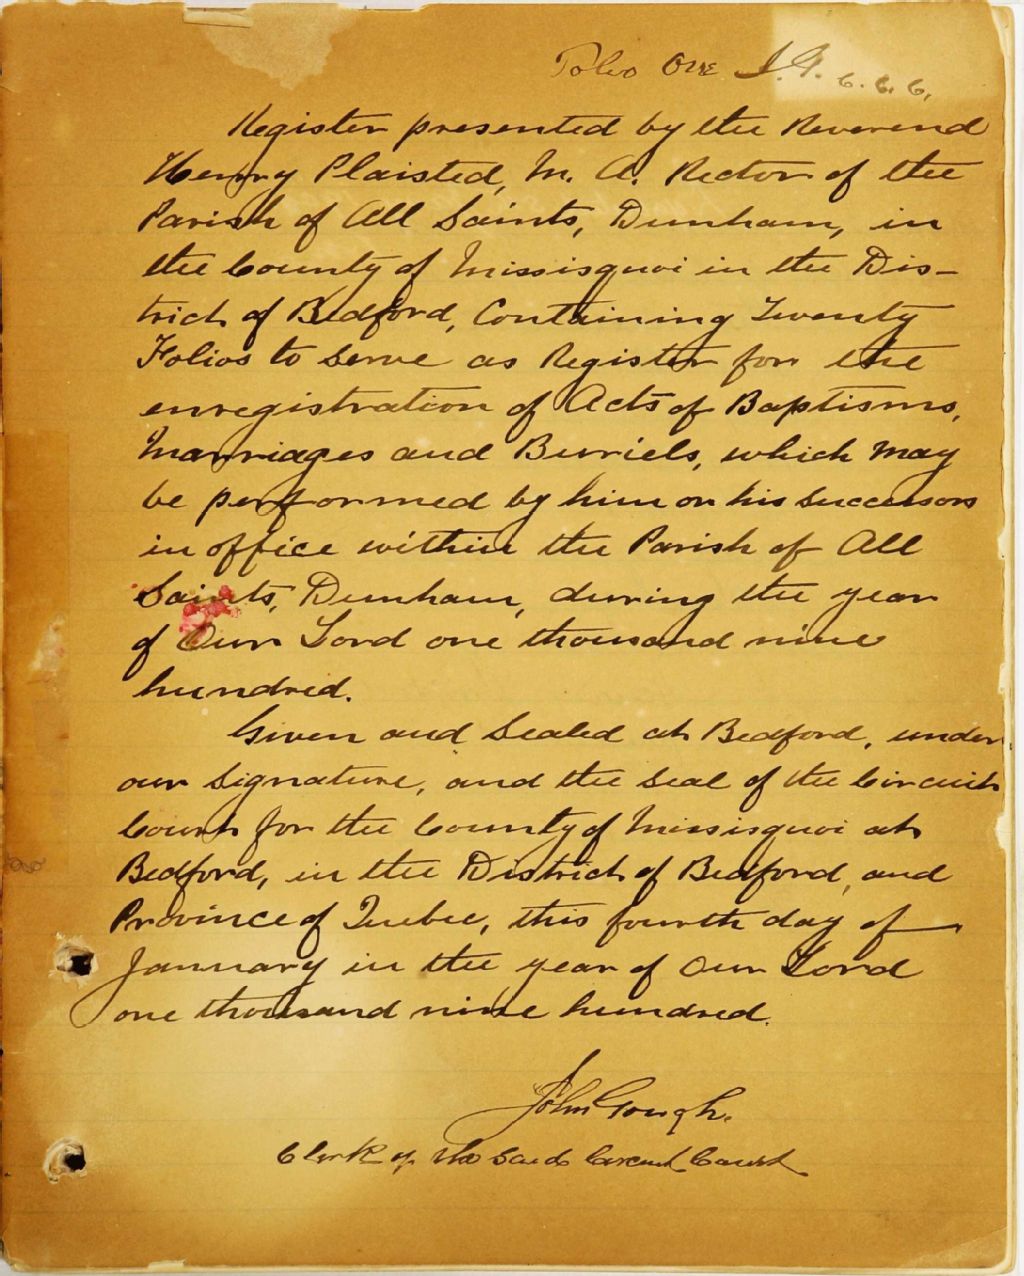 Folio One J. G. C. C. C.
Register presented by the Reverend
Henry Plaisted, M. A. Rector of the
Parish of All Saints, Dunham, in
the County of Missisquoi in the Dis-
trict of Bedford, Containing Twenty
Folios to serve as Register for the
enregistration of Acts of Baptisms,
Marriages and Buriels, which may
be performed by him or his successors
in office within the Parish of All
Saints, Dunham, during the year
of Our Lord one thousand nine
hundred.
Given and Sealed at Bedford, under
our Signature, and the seal of the Circuit
Court for the County of Missisquoi at
Bedford, in the District of Bedford, and
Province of Quebec, this fourth day of
January in the year of Our Lord
one thousand nine hundred.
John Gough.
Clerk of the said Circuit Court